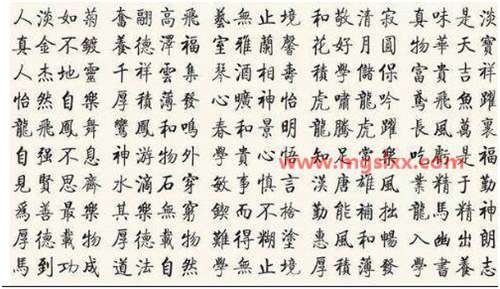 人淡如菊 奮翮高飛 藝無止境 和敬清寂 真味是淡
真金不鍍 養德澤福 室雅蘭馨 花好月圓 物華天寶
人杰地靈 千祥雲集 琴酒相壽 學儲保 富貴吉祥
怡然自樂 厚積薄發 曠神怡 虎嘯龍吟 鳶飛魚躍
龍飛鳳舞 鸞鳳和鳴 春和景明 龍騰虎躍 長風萬裏
自强不息 神游物外 學貴心悟 知足常樂 吃虧是福
見賢思齊 水滴石穿 敏事慎言 漢唐雄風 業精於勤
爲善最樂 其樂無窮 鍥而不捨 勤能補拙 龍馬精神
厚德載物 厚德載物 難得糊塗 惠風和暢 入幽出朗
馬到功成 道法自然 學無止境 厚積薄發 學書養志
www.mgslxx.com